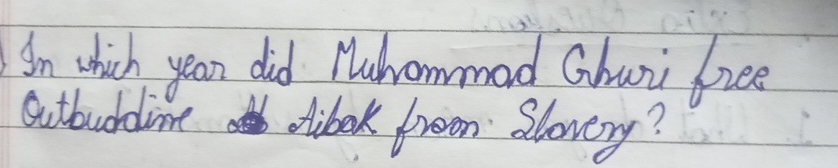 In which year did Muhammad Ghuri free
Qutbuddine Aibak from Slavery?